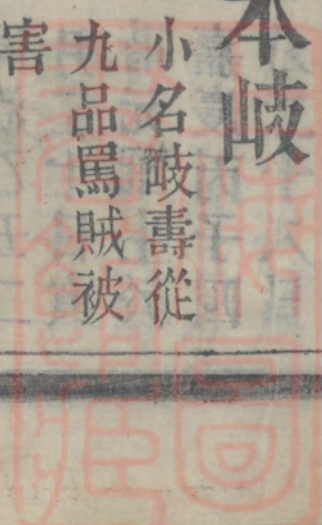 本岐
小名岐壽從
九品罵賊被
害